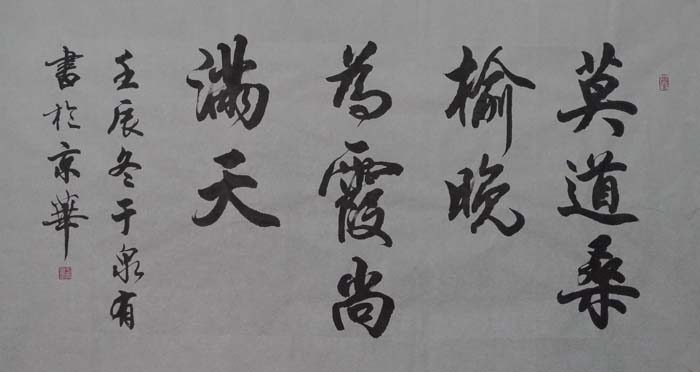 莫道桑
榆晚
為霞尚
滿天
壬辰冬于泉有
書於京華